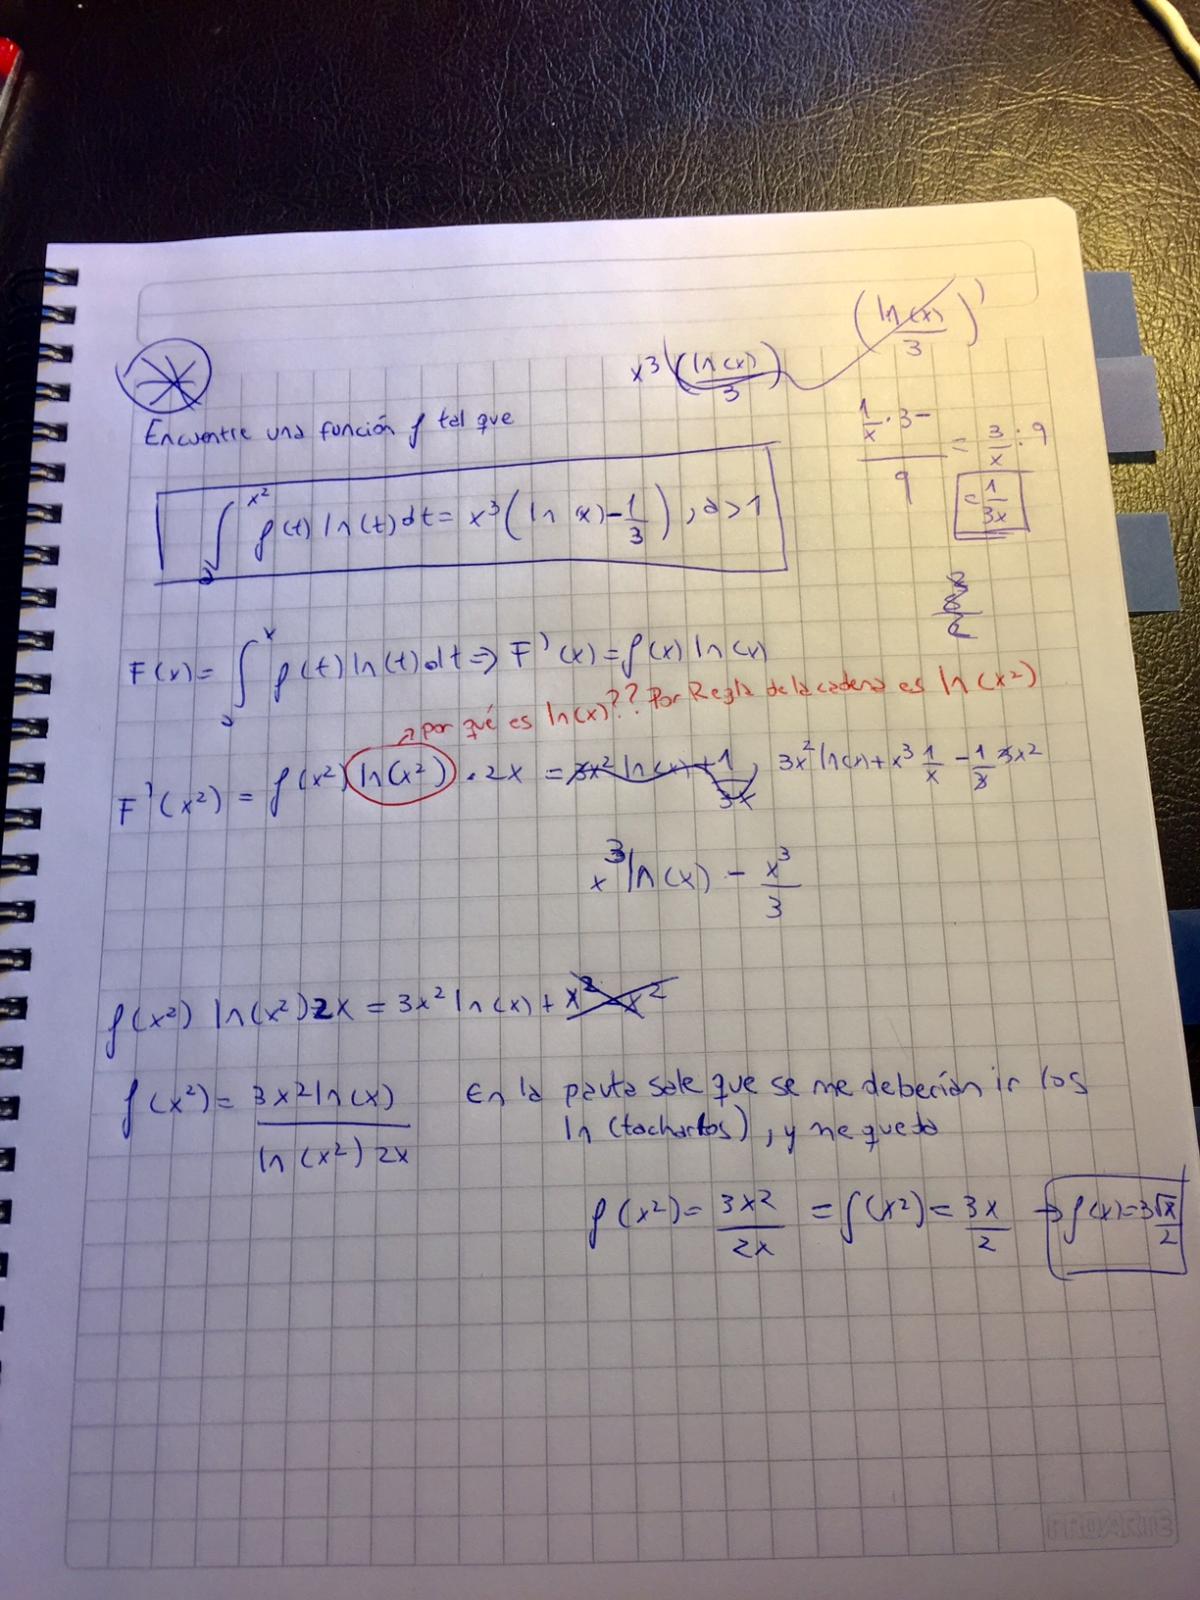 (ln(x)/3)'
x³ (ln(x)/3)
Encuentre una función f tal que
1/x · 3 − / 9 = 3/x : 9
= 1/3x
∫ₐ^x² f(t) ln(t) dt = x³ (ln(x) − 1/3), a > 1
F(x) = ∫ₐ^x f(t) ln(t) dt ⇒ F'(x) = f(x) ln(x)
↗ por qué es ln(x)?? Por Regla de la cadena es ln(x²)
F'(x²) = f(x²) ln(x²) · 2x = 3x² ln(x) + 1/3x, 3x² ln(x) + x³ 1/x − 1/3 3x²
x³ ln(x) − x³/3
f(x²) ln(x²) 2x = 3x² ln(x) + x² − x²
f(x²) = 3x² ln(x) / ln(x²) 2x
En la pauta sale que se me deberían ir los
ln (tacharlos), y me queda
f(x²) = 3x² / 2x = f(x²) = 3x/2 → f(x) = 3√x/2